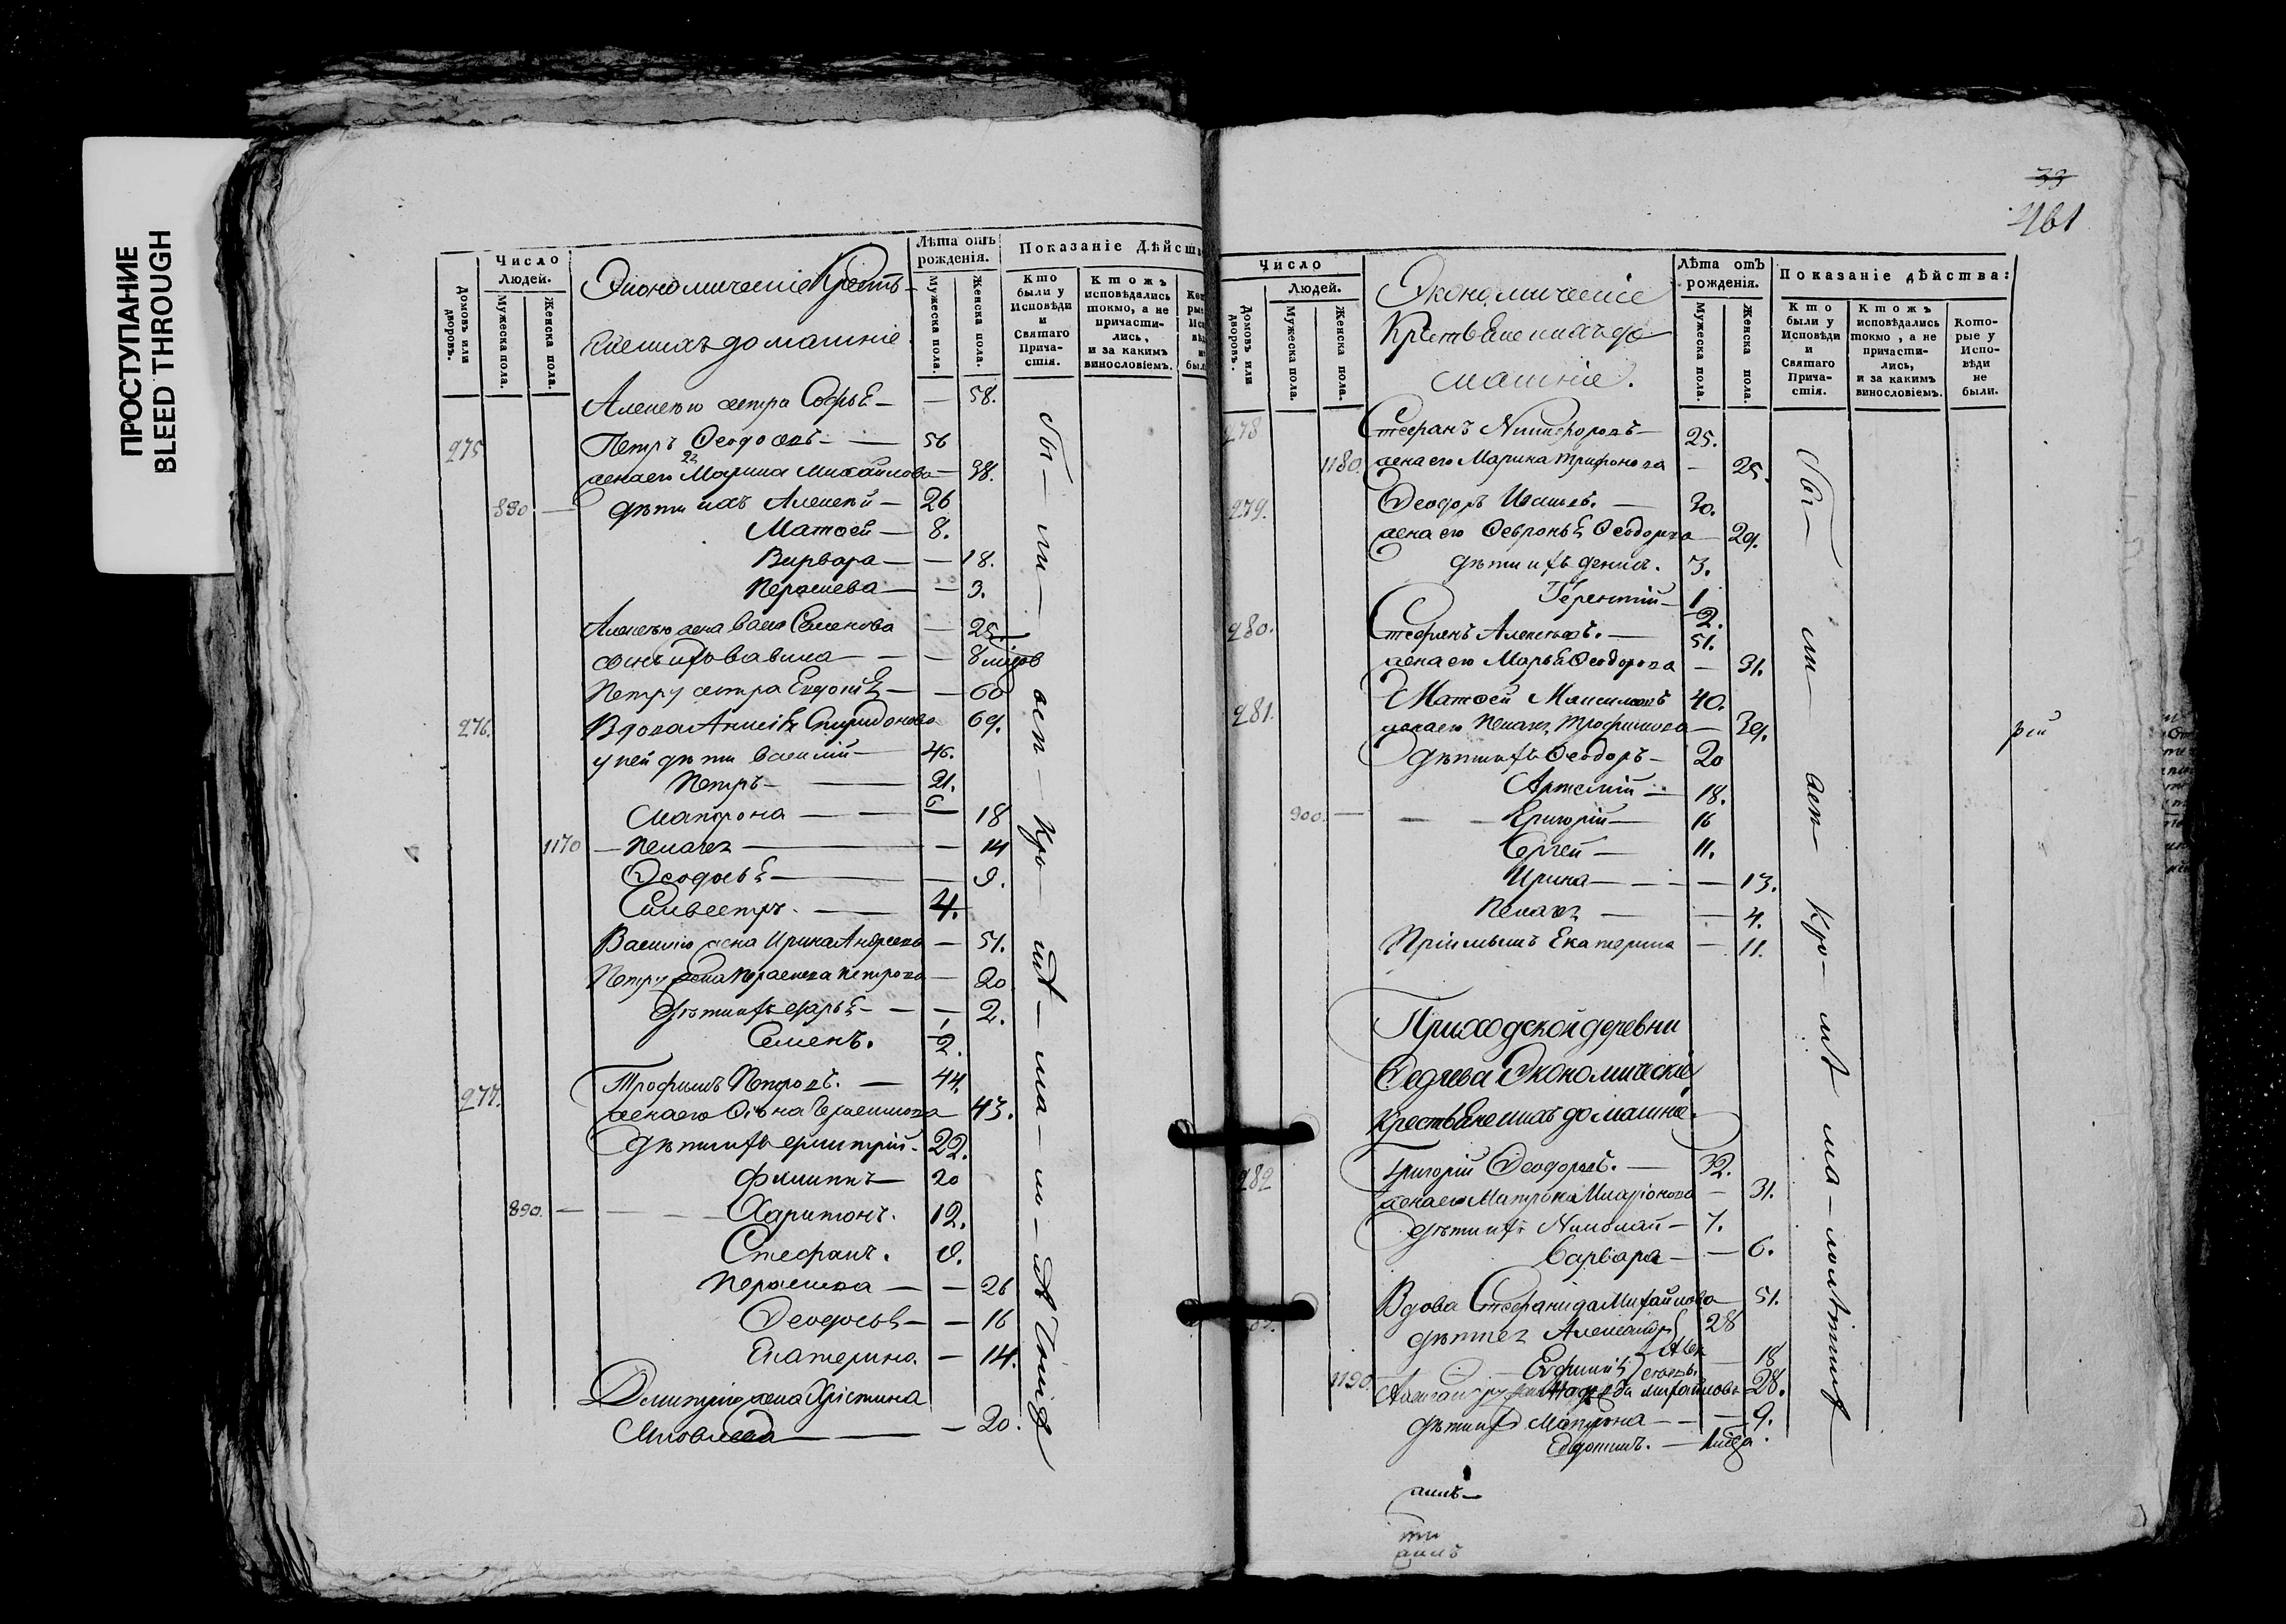 ПРОСТУПАНИЕ
BLEED THROUGH
Число
Людей.
Домовъ или дворовъ.
Мужеска пола.
Женска пола.
Экономическіе Крестъ-
яне ихъ домашніе.
Лѣта отъ
рожденія.
Мужеска пола.
Женска пола.
Показаніе Дѣйств
Кто
были у
Исповѣди
и
Святаго
Прича-
стія.
Ктожъ
исповѣдались
токмо, а не
причасти-
лись,
и за какимъ
винословіемъ.
Алексѣю сестра Софья — — 58.
275 Петръ Феодоровъ — — 56
жена его Марина Михайлова — 38.
880 — дѣти ихъ Алексѣй — 26
Матфей — 8.
Варвара — — 18.
Параскева — — 3.
Алексѣю жена Васса Семенова — 25
сынъ ихъ Вавила — — 8
Петру сестра Евдокія — — 60
276. Вдова Анисія Спиридонова 69.
у ней дѣти Василій — 46.
Петръ — — 21.
Матрона — — 18
1170 — Пелагея — — 14
Феодосья — — 9.
Сильвестръ. — 4.
Василію жена Ирина Андреева — 51.
Петру жена Параскева Петрова — 20
дѣти ихъ Дарья — — 2.
Семенъ. 2.
277. Трофимъ Петровъ. — 44.
жена его 43.
дѣти ихъ Димитрій — 22.
Филиппъ — 20
890. — Харитонъ. 12.
Стефанъ. 9.
Параскева — — 26
Феодосья — — 16
Екатерина — 14.
Димитрію жена Христина
Яковлева — — 20.
бы — ли — у исп
39
461
Число
Людей.
Домовъ или дворовъ.
Мужеска пола.
Женска пола.
Экономическіе
Крестьяне ихъ до-
машніе.
Лѣта отъ
рожденія.
Мужеска пола.
Женска пола.
Показаніе дѣйства:
Кто
были у
Исповѣди
и
Святаго
Прича-
стія.
Ктожъ
исповѣдались
токмо, а не
причасти-
лись,
и за какимъ
винословіемъ.
Кото-
рые у
Испо-
вѣди
не
были.
278 Стефанъ Никифоровъ — 25.
1180. жена его Марина Трифонова — 25.
279. Феодоръ Ивановъ. — 30.
жена его Февронья Феодорова — 29.
дѣти ихъ Денисъ. 3.
Терентій — 1/2.
280. Стефанъ Алексѣевъ. — 51.
жена его Марья Феодорова — 31.
281. Матфей Максимовъ 40.
жена его Пелагея Трофимова — 39.
дѣти ихъ Феодоръ — 20
Артемій — 18.
900. — Григорій — 16
Сергей — 11.
Ирина — — 13.
Пелагея — — 4.
Пріимышъ Екатерина — 11.
Приходской деревни
Федяева Экономическіе
Крестьяне ихъ домашніе.
282 Григорій Феодоровъ. — 32.
жена его Матрона Иларіонова — 31.
дѣти ихъ Николай — 7.
Варвара — — 6.
Вдова Стефанида Михайлова — 51.
дѣти ея Александръ 28
Евфимія 18
1190. Александру жена Надежда Михайлова — 28.
дѣти ихъ Матрона — — 9.
Евдокимъ. —